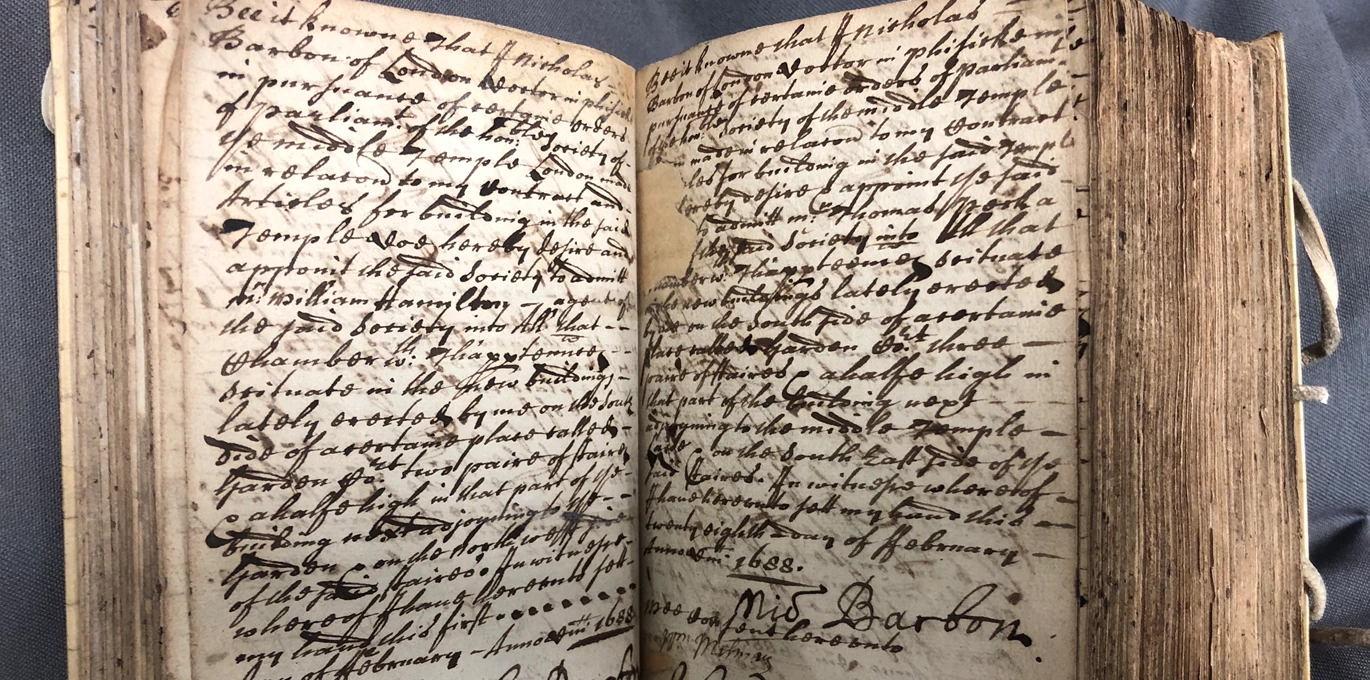 Bee it knowne that I Nicholas
Barbon of London Doctor in phisick
in pursuance of certaine orders
of Parliamt. of the honble. Society of
ye middle Temple London made
in relacon to my Contract and
Articles for building in the said
Temple Doe hereby desire and
appoint the said Society to admitt
mr. William Hamilton — agent of
the said Society into All that — —
Chamber wth. Thappteences
scituate in the new buildings —
lately erected by me on the South
side of a certaine place called
Garden Cort two paire of staires
& a halfe high in that part of the —
building next adjoyning to the —
Garden & on the North west side
of the said staires. In witnesse
whereof I have hereunto sett
my hand this first
day of February Anno Dni: 1688
Bee it knowne that I Nicholas
Barbon of London Doctor in phisicke in
pursuance of certaine orders of Parliam
of the honble. Society of the middle Temple
made in relacon to my Contract
les for building in the said Temple
hereby desire & appoint the said
to admitt mr. Thomas
the said Society into All that
Chamber wth. Thappteences scituate
the new buildings lately erected
by me on the South side of a certaine
place called Garden Cort three —
paire of staires & a halfe high in
that part of the building next —
adjoyning to the middle Temple —
& on the South East side of the
said staires. In witnesse whereof —
I have hereunto sett my hand this —
twenty eighth day of February —
Anno Dni: 1688.
Nic Barbon
Wee doe hereunto